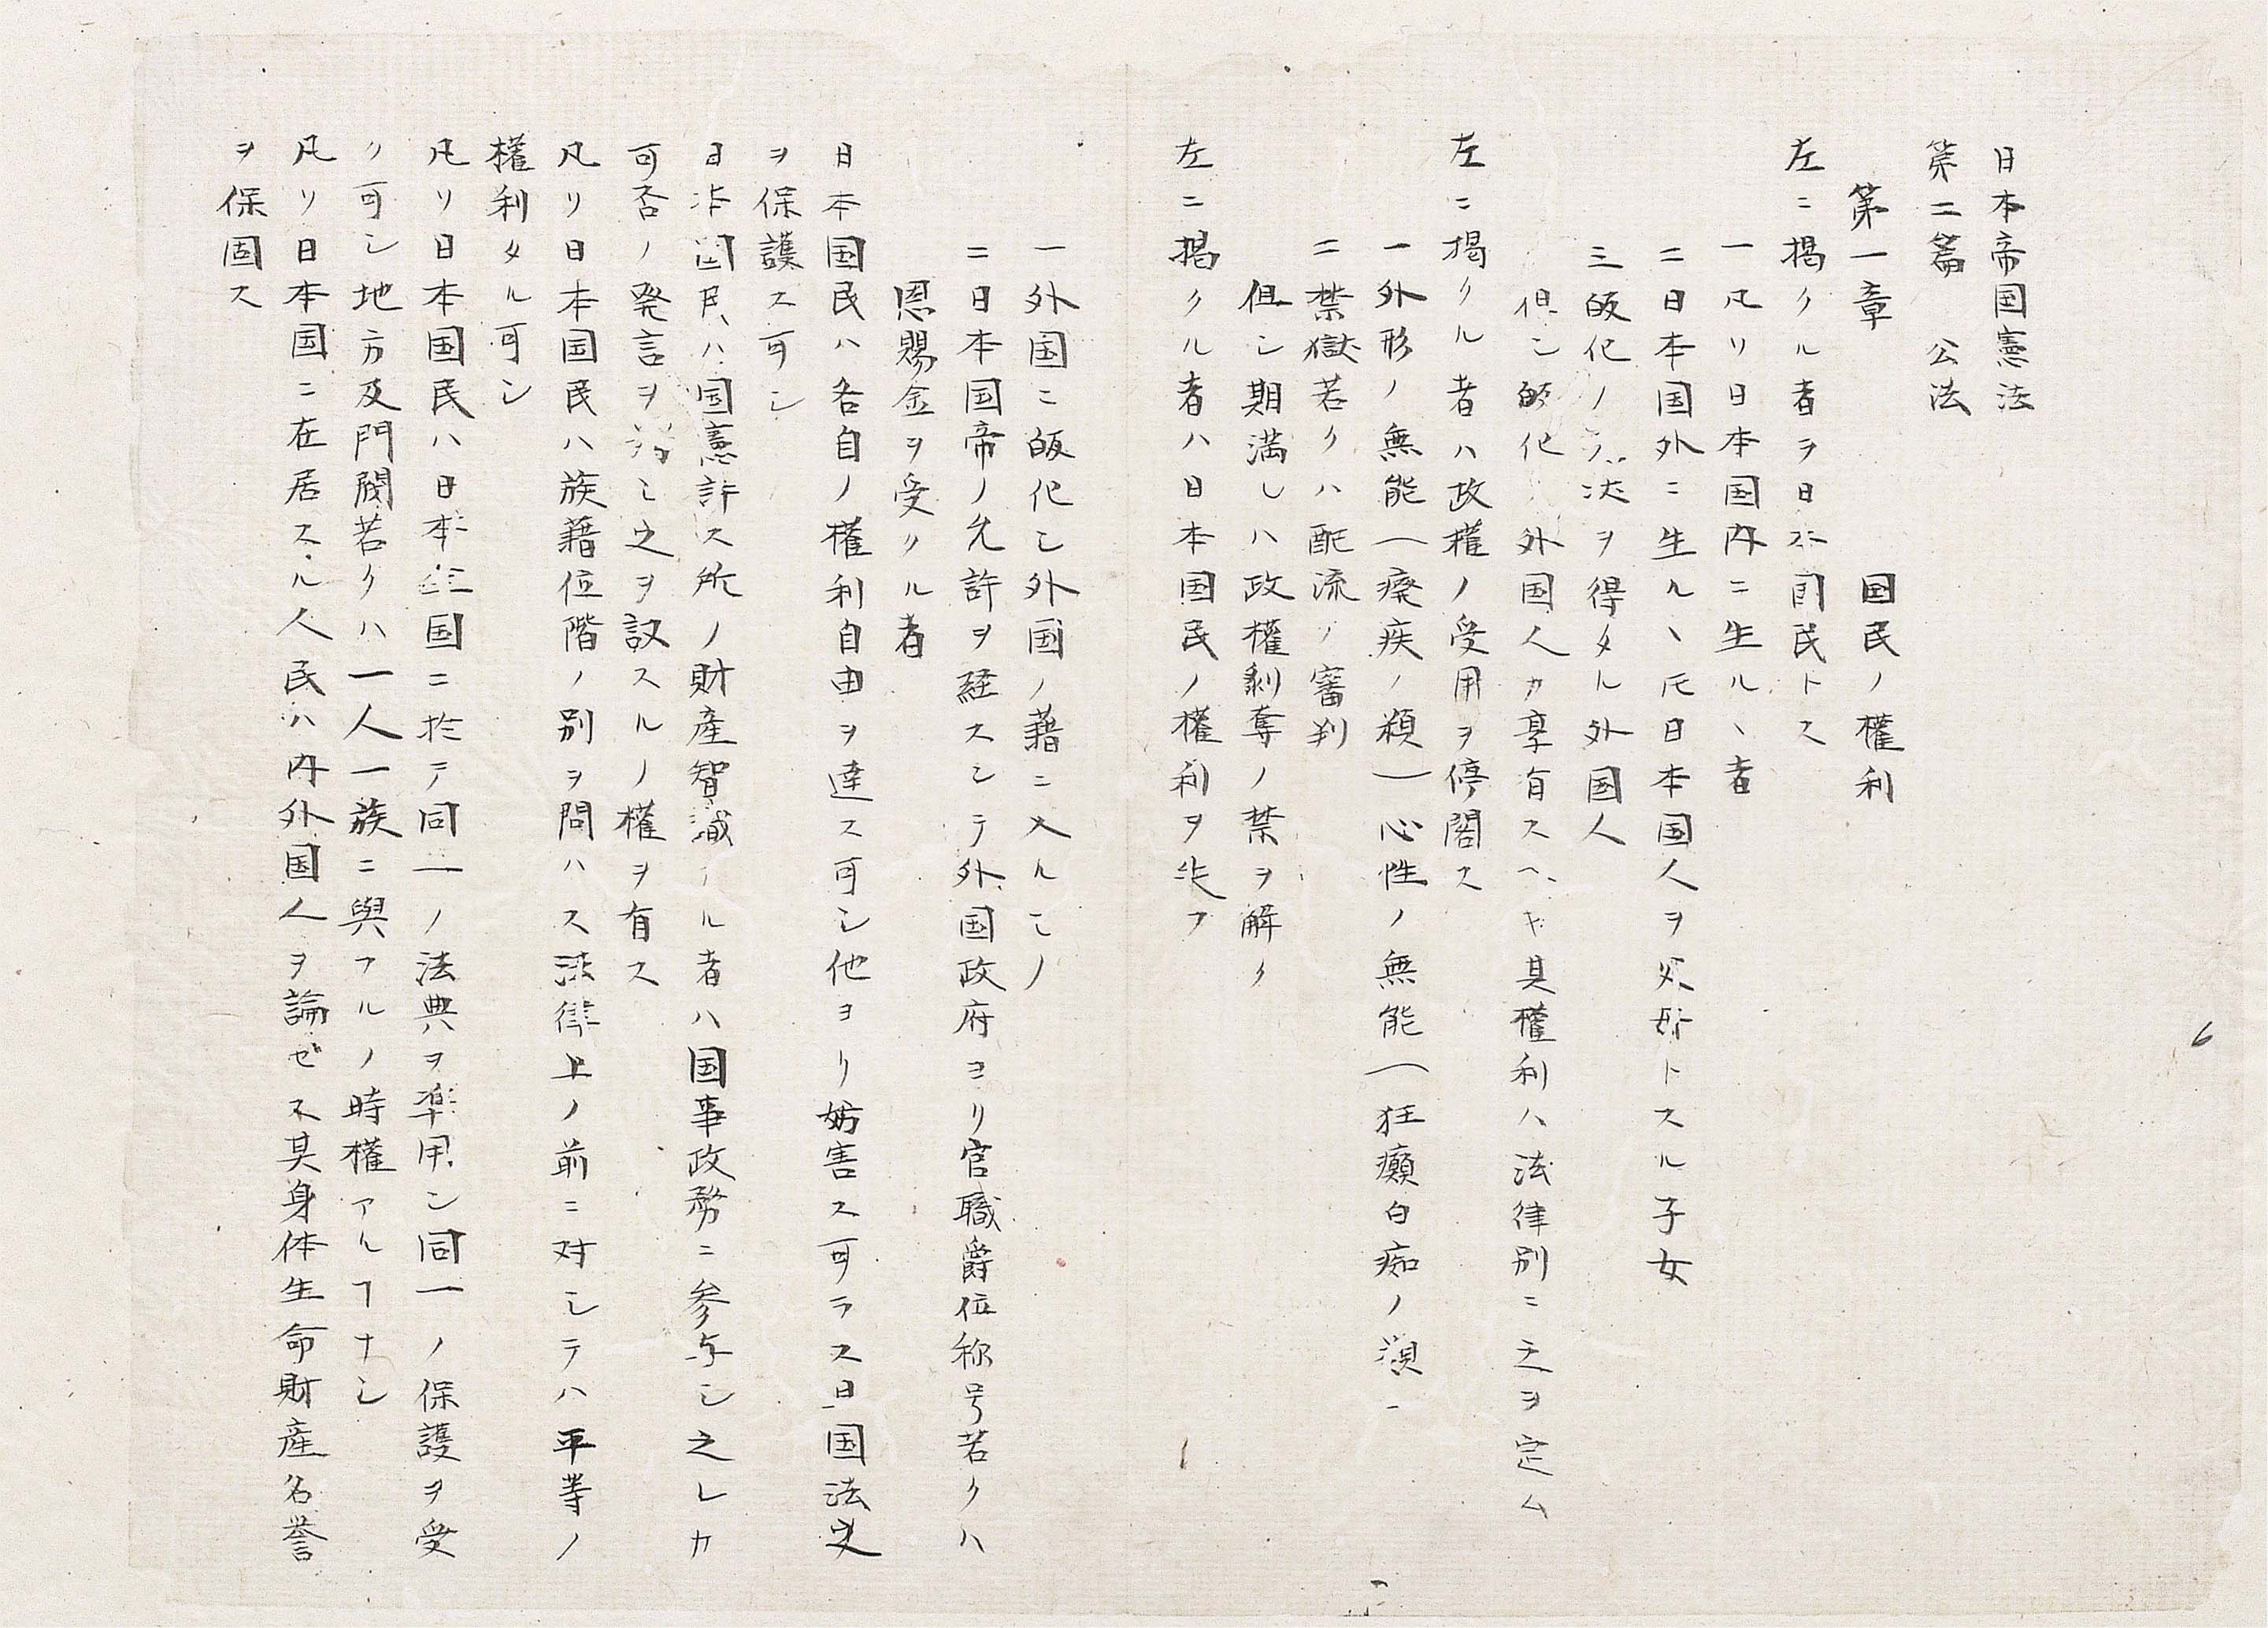 日本帝国憲法
第二篇　公法
第一章　国民ノ權利
左ニ掲クル者ヲ日本国民トス
一凡ソ日本国内ニ生ルヽ者
二日本国外ニ生ルヽ𪜈日本国人ヲ父母トスル子女
三皈化ノ法ヲ得タル外国人
但シ皈化外国人カ享有スヘキ其權利ハ法律別ニ之ヲ定ム
左ニ掲クル者ハ政權ノ受用ヲ停閣ス
一外形ノ無能（癈疾ノ類）心性ノ無能（狂癲白痴ノ類
二禁獄若クハ配流ノ審判
但シ期満レハ政權剥奪ノ禁ヲ解ク
左ニ掲クル者ハ日本国民ノ權利ヲ失フ
一外国ニ皈化シ外国ノ藉ニ入ルモノ
二日本国帝ノ允許ヲ経スシテ外国政府ヨリ官職爵位称号若クハ
恩賜金ヲ受クル者
日本国民ハ各自ノ權利自由ヲ達ス可シ他ヨリ妨害ス可ラス且国法之
ヲ保護ス可シ
日本国民ハ国憲許ス所ノ財産智識アル者ハ国事政務ニ参与シ之レカ
可否ノ発言ヲ為シ之ヲ議スルノ權ヲ有ス
凡ソ日本国民ハ族藉位階ノ別ヲ問ハス法律上ノ前ニ対シテハ平等ノ
權利タル可シ
凡ソ日本国民ハ日本全国ニ於テ同一ノ法典ヲ準用シ同一ノ保護ヲ受
ク可シ地方及門閥若クハ一人一族ニ與フルノ時權アルヿナシ
凡ソ日本国ニ在居スル人民ハ内外国人ヲ論セス其身体生命財産名誉
ヲ保固ス